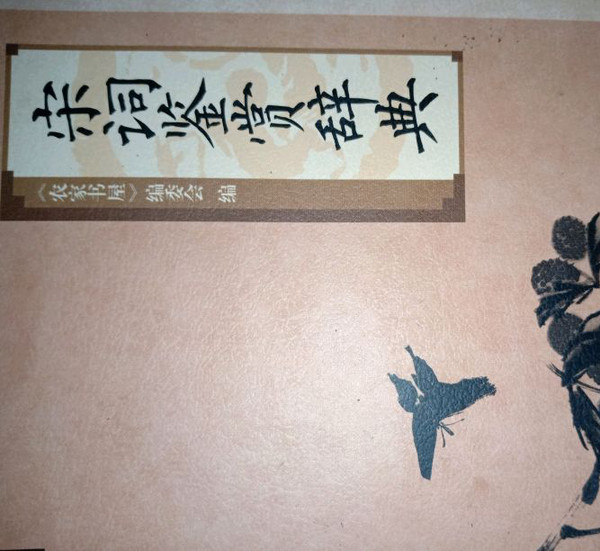 宋词鉴赏辞典
《农家书屋》编委会 编